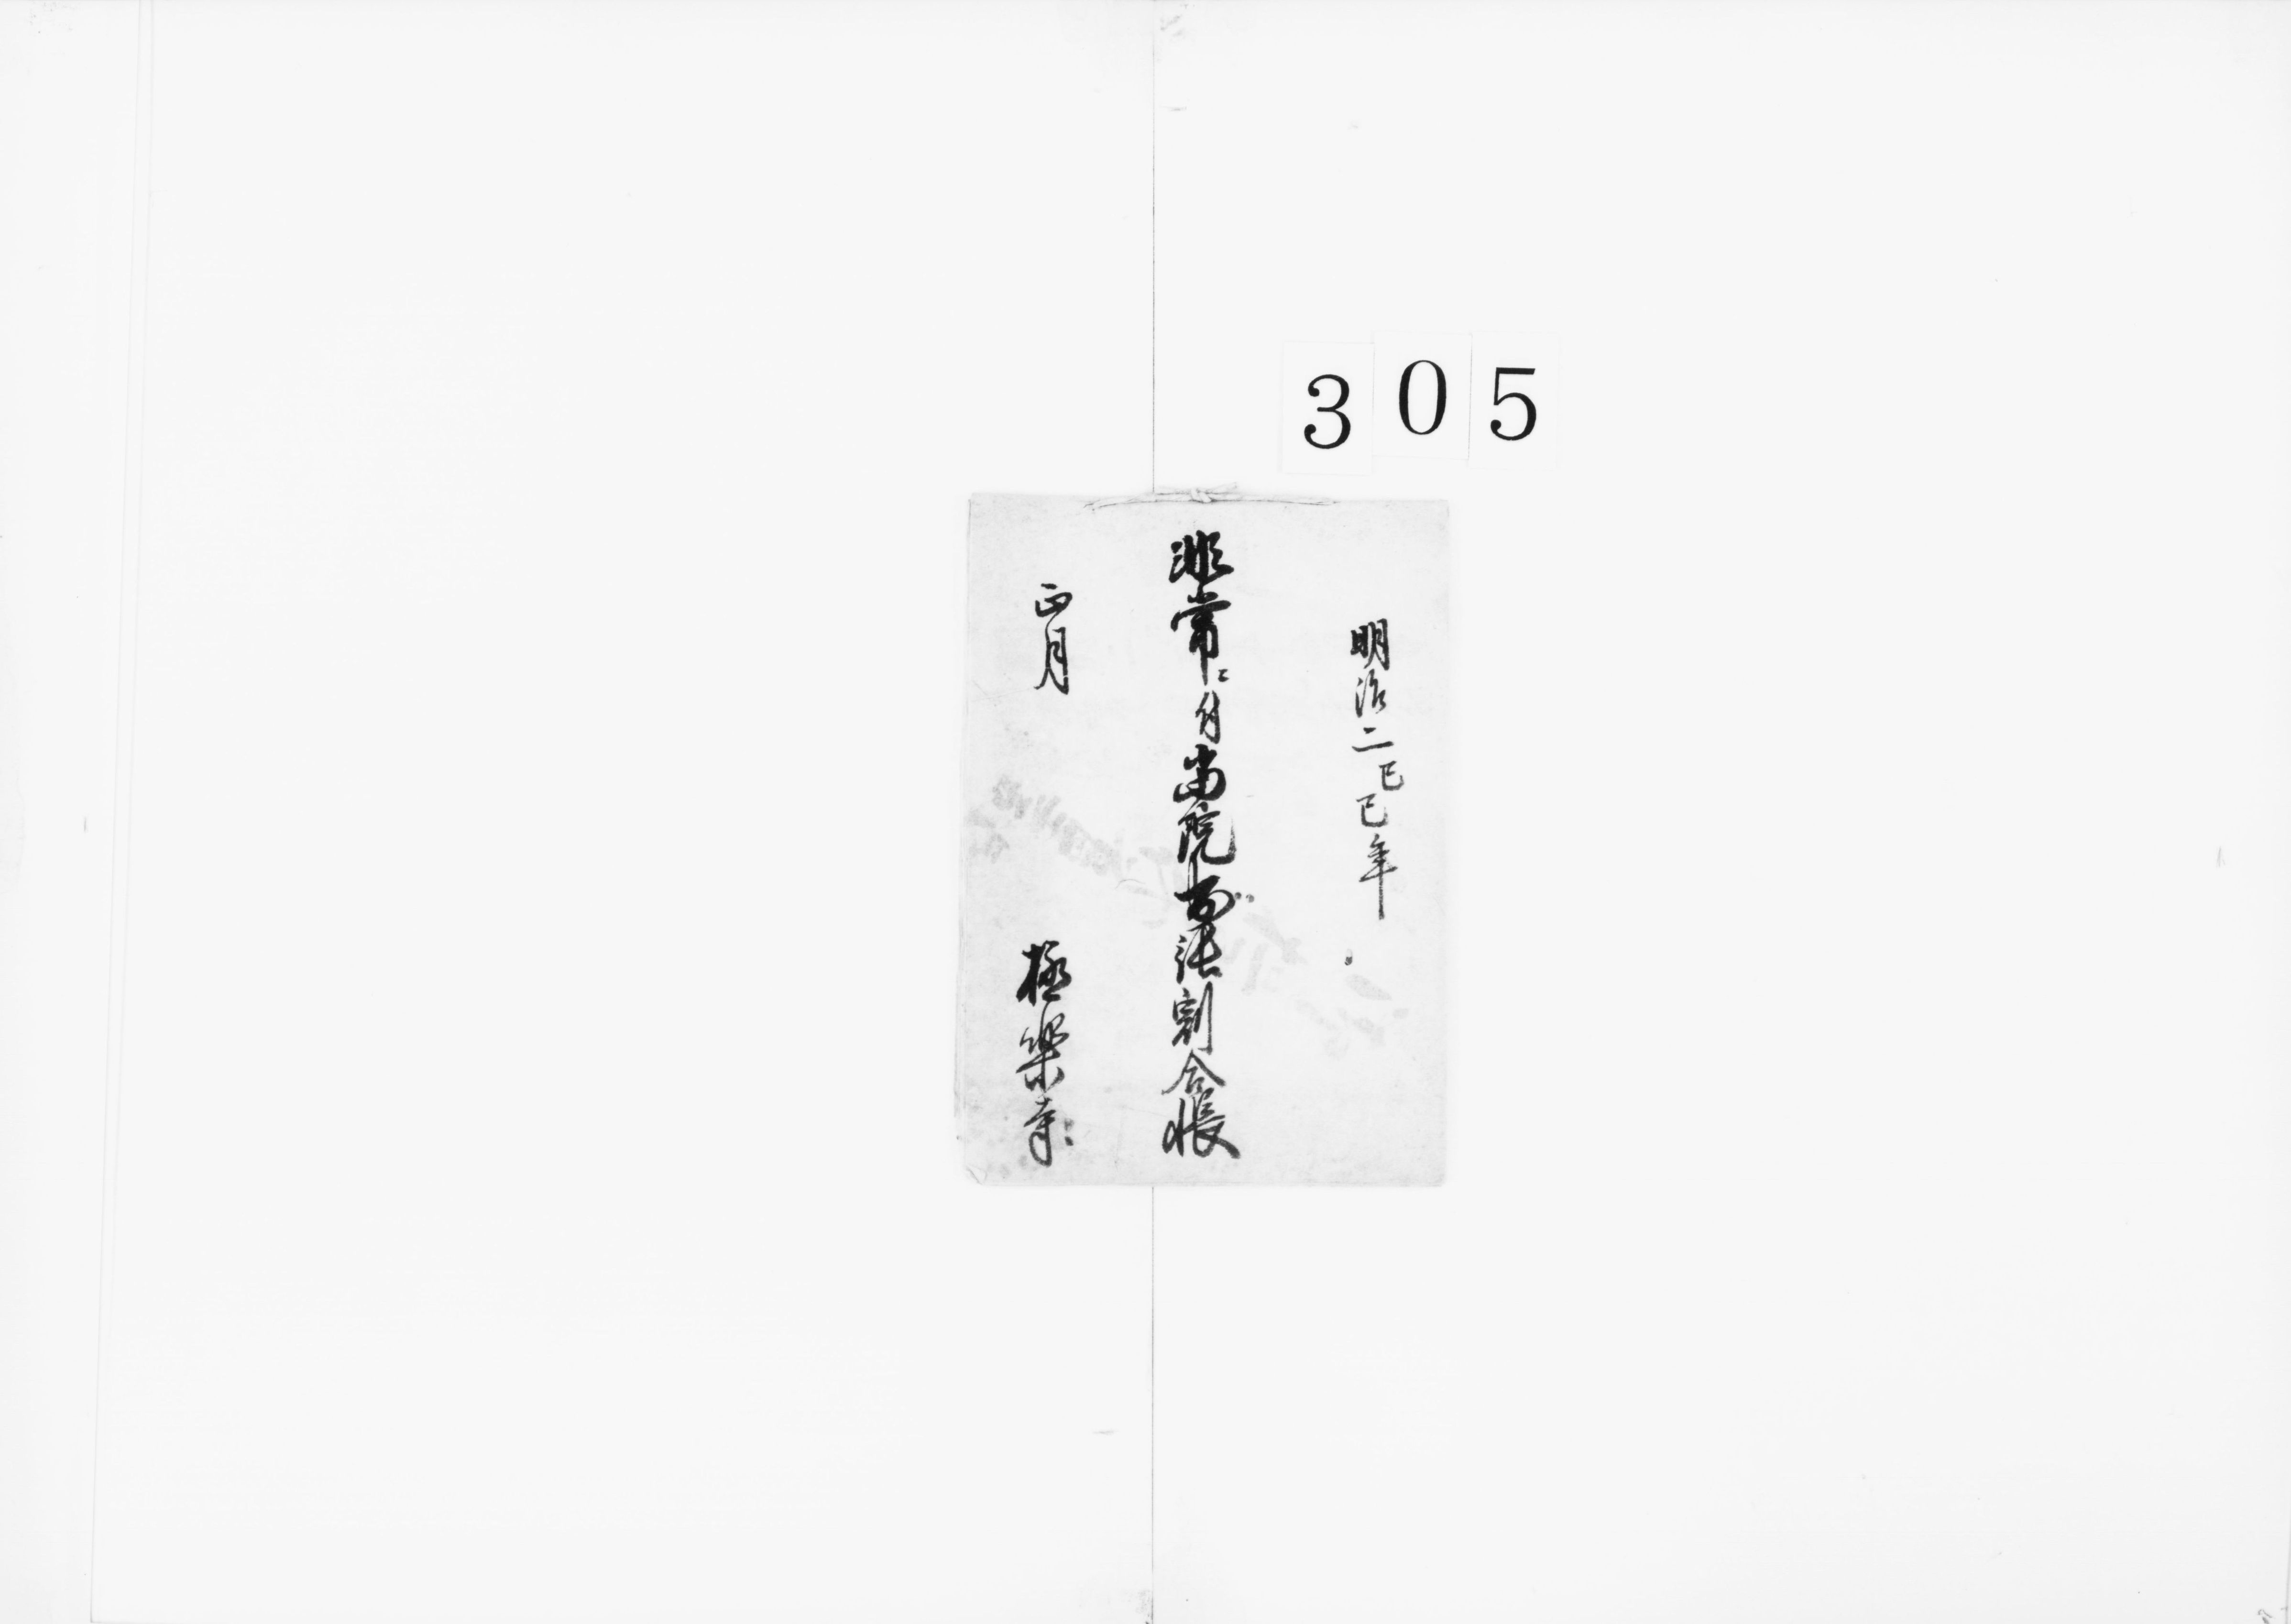 305
明治二己巳年
非常ニ付当院詰割合帳
正月
極楽寺